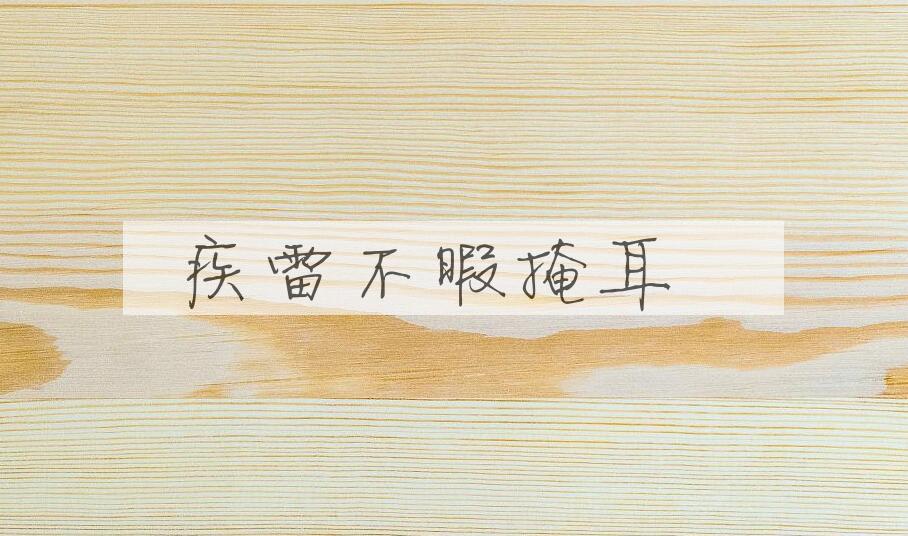 疾雷不暇掩耳